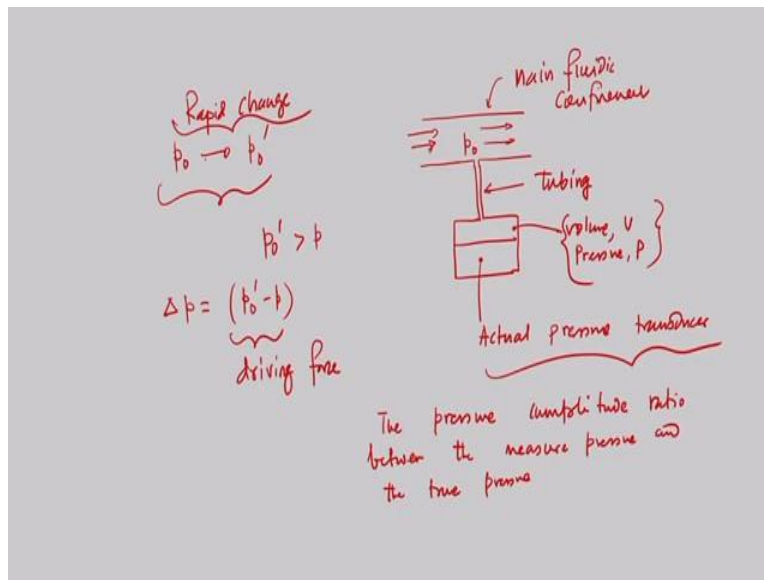 Rapid change
p₀ → p₀′
p₀′ > p
Δp = (p₀′-p)
driving force
Main fluidic
confinement
p₀
Tubing
Volume, V
Pressure, P
Actual pressure transducer
The pressure amplitude ratio
between the measure pressure and
the true pressure